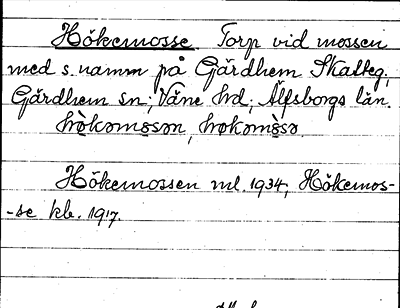 Hökemosse Torp vid mossen
med s. namn på Gärdhem Skatteg.
Gärdhem sn; Väne hd; Älfsborgs län.
Hökemossen ml. 1934, Hökemos-
-se kb. 1917.